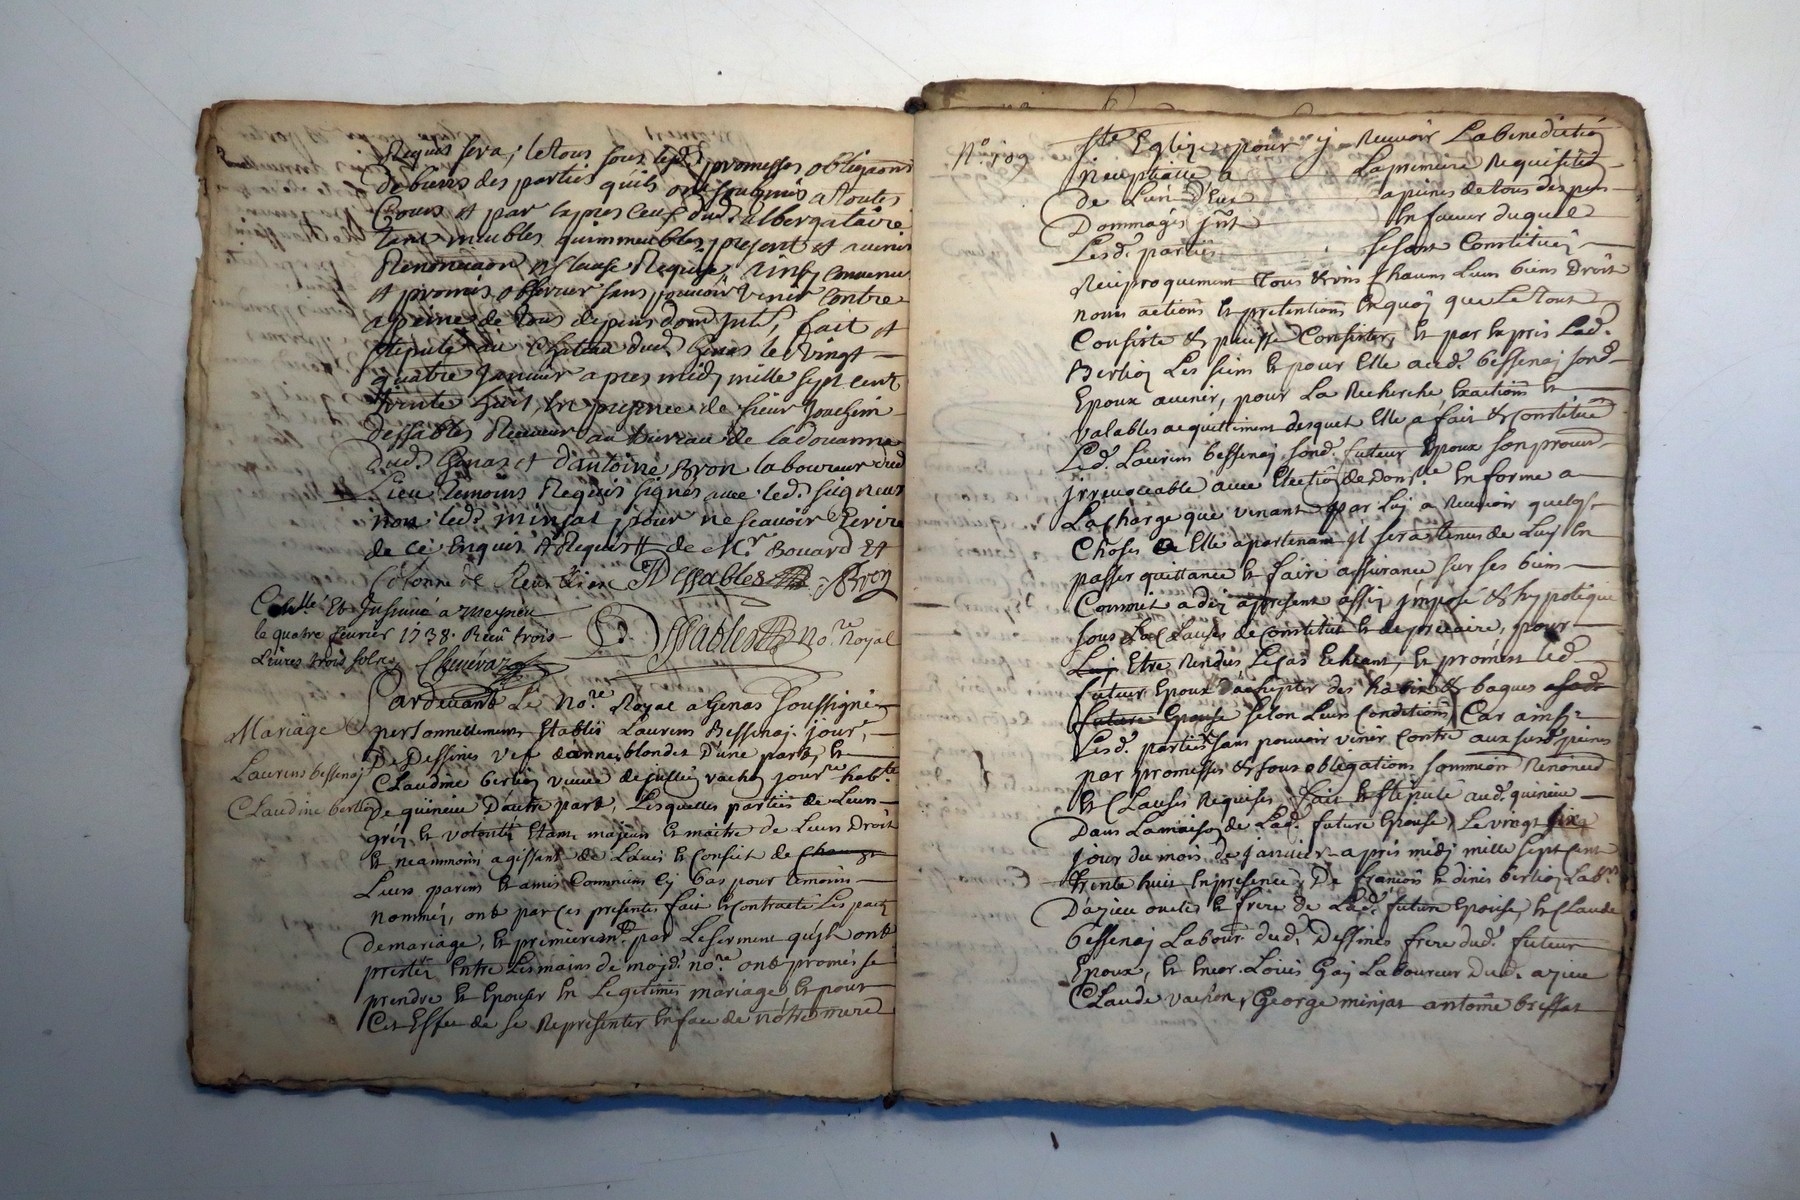 Requis sera, le tous sous lesd. promesses obligaons
de biens des parties quils ont soubmis a toutes
Cours et par expres ceux dud. albergataire
tant meubles quimmeubles, present et avenir
Renonciaon et Clause Requise, Ainsy convenu
et promis observer sans pouvoir venir contre
a peines de tous depens dom. Jnts, fait et
stipulé au Chateau dud. Genas le vingt
quatre Janvier apres midy mille sept cent
trente huit, En presence de sieur Joachim
Dessables Receveur au bureau de la douanne
dud. Genas et d'antoine Bron laboureur dud
Lieu temoins Requis signés avec led. seigneur
non led. minjat pour ne scavoir Ecrire
de ce Enquis et Requis # de Mr. Bouard Et
Colonne de
DEssables Bron
Collé Et Jnsinué a Meyzieu
le quatre fevrier 1738. Receu trois
Livres trois sols
Dessables no.re Royal
Pardevant Le No.re Royal a Genas soussigné
Mariage
personnellement Etablis Laurens Bessenaj jour.r
Laurens bessenaj
De Dessines vef danne blondet D'une part, Et
Claudine berlioz
Claudine berlioz veuve de jullien vachon jour.re hab.te
De quineue D'autre part, Lesquelles parties de Leurs
gréz et volonté Etant majeurs Et maitre de Leurs Droit
Et neammoins agissant de L'avis Et Conseil de
Leurs parens Et amis Communs Cy bas pour temoins
nommés, ont par Ces presentes fait Et Contracté Les pact
de mariage, Et premierem.t par Le serment quils ont
presté Entre Les mains de mojd. no.re ont promis se
prendre Et Epouser En Legitime mariage Et pour
Cet Effet de se Representer En face de nôtre mere
N.o 109
S.te Eglize pour y Recevoir La benediction
nuptialle a La premiere Requisition
de L'un D'Eux a peines de tous depens
Dommages Jnt En faveur duquel
Lesd. parties se sont Constitués
Reciproquement tous Et Uns Chacuns Leurs biens Droit
noms actions Et pretentions En quoy que Le tout
Consiste Et puisse Consister, Et par Expres Lad.
Berlioz Les siens Et pour Elle aud. bessenaj sond.
Epoux avenir, pour La Recherche, Exactions Et
valables acquittement desquels Elle a fait Et Constitué
Led. Laurens bessenaj sond. futur Epoux son procur.
jrrevocable avec Election de dom.lle En forme a
La Charge que venant par Luy a Recevoir quelq.
Choses de Elle apartenant il sera tenus de Luy En
passer quittance Et faire assurance sur ses biens
Comme a dez apresent assis jmpose Et hypoteque
sous La Clauses de Constitut Et de precaire, pour
Luy Etre Rendus Le Cas Echeant, Et promest Led.
futeur Epoux d'achepter des habits Et bagues a sad.
future Epouse selon Leurs Conditions, Car ainsi
Lesd. parties sans pouvoir venir Contre aux susd. peines
par promesses Et sous obligations sommission Renonciaõ
Et Clauses Requises, fait Et stipulé aud. quineue
Dans La maison de Lad. future Epouse, Le vingt six
jour du mois de janvier apres midy mille sept Cent
trente huit En presence De francois Et denis berlioz Lab.rs
D'azieu oncles Et frere de Lad. future Epouse, Et Claude
bessenaj Labour. dud. Dessines frere dud. futeur
Epoux, Et Encor. Louis Gaj Laboureur Dud. azieu
Claude vachon, George minjat antoine bressat